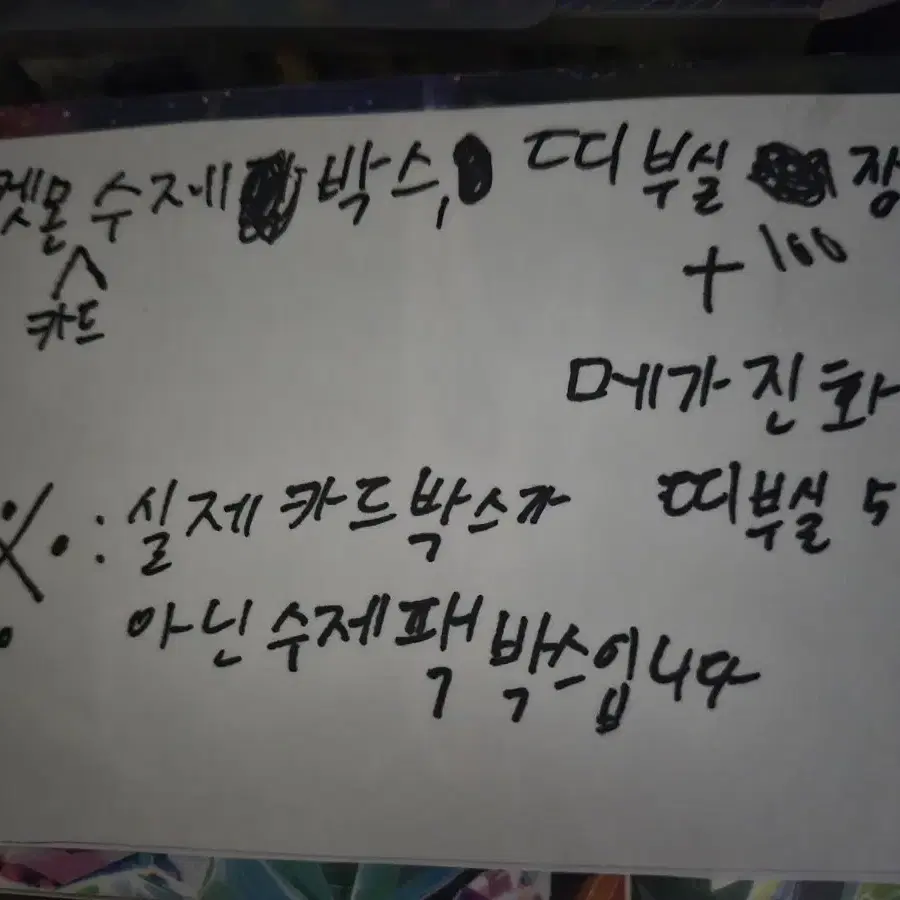 켓몬 수제 박스, 띠부실 장
카드
+100
메가진화
띠부실 5
※.: 실제 카드박스가
아닌 수제팩 박스입니다